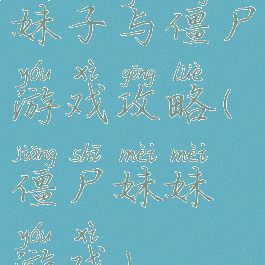 妹子与僵尸
yóu xì gōng lüè
游戏攻略(
jiāng shī mèi mèi
僵尸妹妹
yóu xì
游戏)